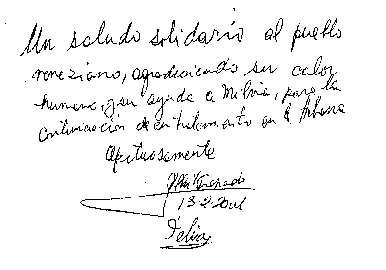 Un saludo solidario al pueblo
veneziano, agradeciendo su calor
humano, y su ayuda a Milvia, para la
continuación de su tratamiento en la Habana
Afectuosamente
13-2-2001
Felix